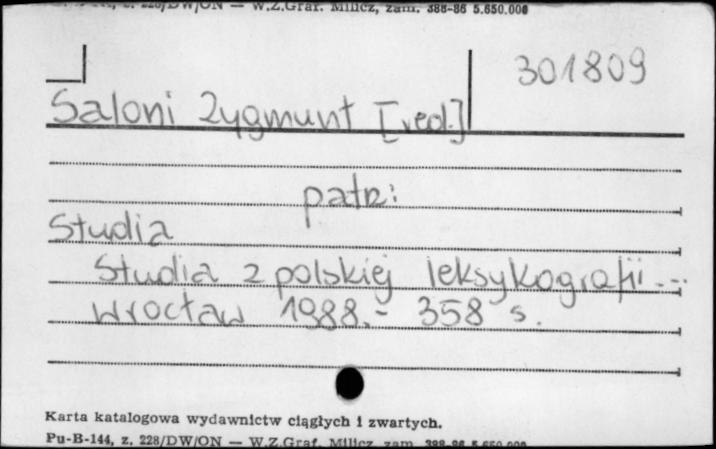 W.Z.Graf. Milicz, zam. 388-86 5.650.000
301809
Saloni Zygmunt [red.]
patrz:
Studia
Studia z polskiej leksykografii...
Wrocław 1988.- 358 s.
Karta katalogowa wydawnictw ciągłych i zwartych.
Pu-B-144, z. 228/DW/ON — W.Z.Graf. Milicz zam. 388-86 5.650.000